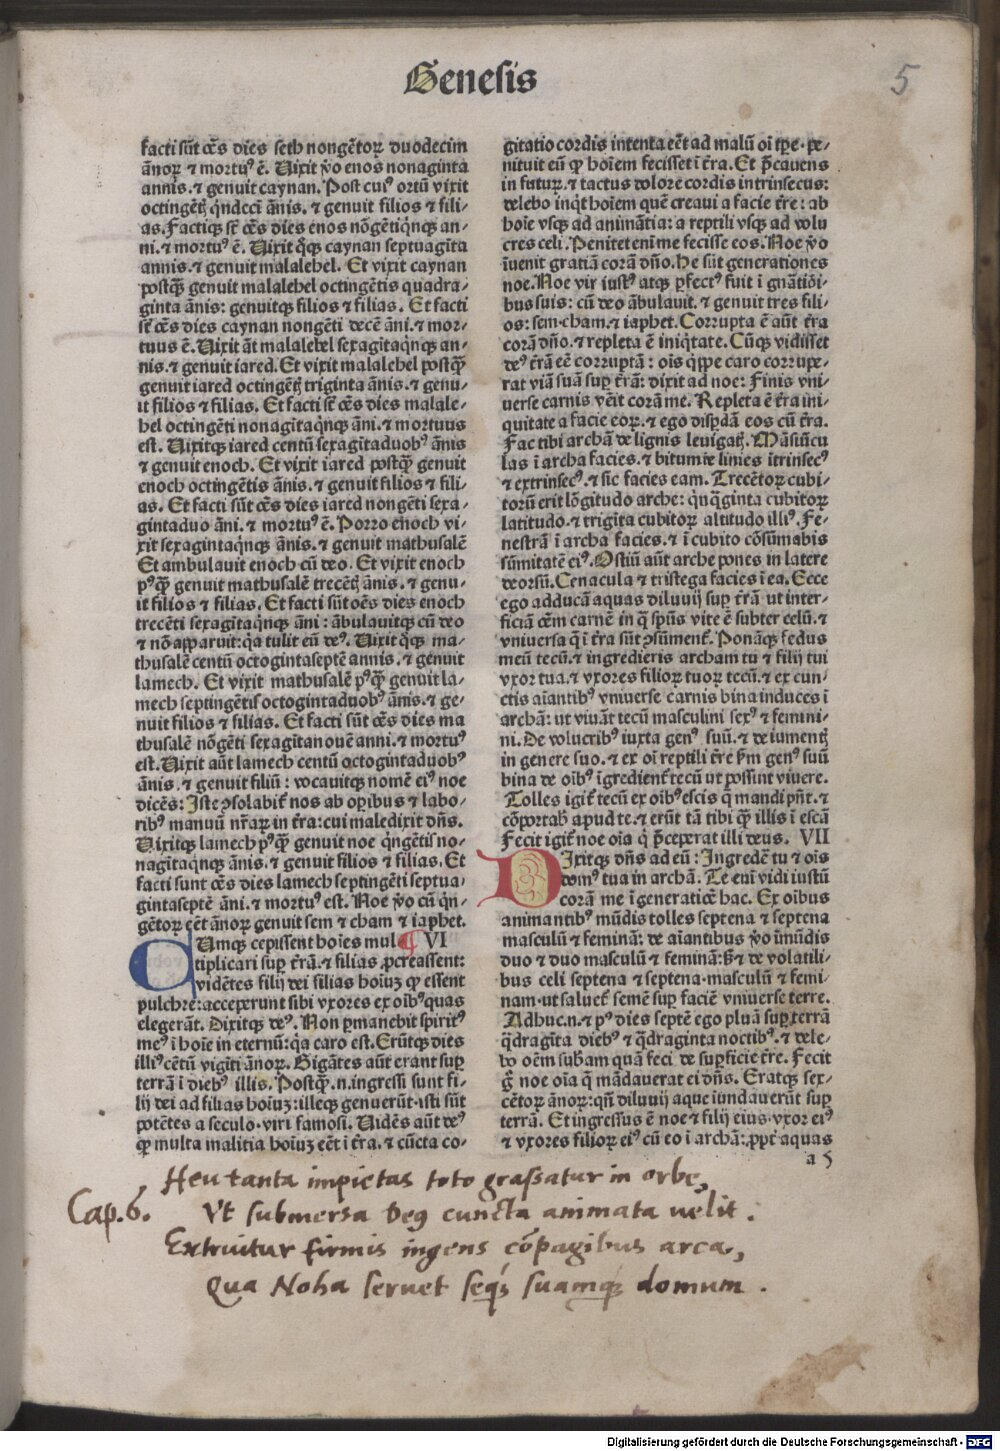 Genesis
5
facti sūt oēs dies seth nongētoꝝ duodecim
ānoꝝ ⁊ mortuꝰ ē. Uixit ꝟo enos nonaginta
annis.⁊ genuit caynan. Post cuiꝰ ortū vixit
octingētꝭ qͥndeci ānis. ⁊ genuit filios ⁊ fili⸗
as. Factiqꝫ sūt oēs dies enos nōgētiqͥnqꝫ an⸗
ni.⁊ mortuꝰ ē. Uixit qͦqꝫ caynan septuagīta
annis.⁊ genuit malalehel. Et vixit caynan
postqꝫ̄ genuit malalehel octingētis quadra⸗
ginta ānis: genuitqꝫ filios ⁊ filias. Et facti
sūt oēs dies caynan nongēti decē āni.⁊ mor⸗
tuus ē. Uixit āt malalehel sexagītaqͥnqꝫ an⸗
nis.⁊ genuit iared. Et vixit malalehel postqꝫ̄
genuit iared octingētꝭ triginta ānis.⁊ genu⸗
it filios ⁊ filias. Et facti sūt oēs dies malale⸗
hel octingēti nonagītaqͥnqꝫ āni.⁊ mortuus
est. Uixitqꝫ iared centū sexagītaduobꝰ ānis
⁊ genuit enoch. Et vixit iared postqꝫ̄ genuit
enoch octingētis ānis.⁊ genuit filios ⁊ fili⸗
as. Et facti sūt oēs dies iared nongēti sexa⸗
gintaduo āni.⁊ mortuꝰ ē. Porro enoch vi⸗
xit sexagintaqͥnqꝫ ānis.⁊ genuit mathusalē
Et ambulauit enoch cū deo. Et vixit enoch
pꝰqꝫ̄ genuit mathusalē trecētꝭ ānis.⁊ genu⸗
it filios ⁊ filias. Et facti sūt oēs dies enoch
trecēti sexagītaqͥnqꝫ āni: ābulauitqꝫ cū deo
⁊ nō apparuit:qͥa tulit eū deꝰ. Uixit qͦqꝫ ma⸗
thusalē centū octogintaseptē annis.⁊ genuit
lamech. Et vixit mathusalē pꝰqꝫ̄ genuit la⸗
mech septingētis octogintaduobꝰ ānis.⁊ ge⸗
nuit filios ⁊ filias. Et facti sūt oēs dies ma
thusalē nōgēti sexagītanouē anni.⁊ mortuꝰ
est. Uixit aūt lamech centū octogintaduobꝰ
ānis.⁊ genuit filiū: vocauitqꝫ nomē eiꝰ noe
dicēs: Iste ↄsolabit̄ nos ab opibus ⁊ labo⸗
ribꝰ manuū nr̄aꝝ in t̄ra:cui maledixit dn̄s.
Uixitqꝫ lamech pꝰqꝫ̄ genuit noe qͥngētis no⸗
nagītaqͥnqꝫ ānis.⁊ genuit filios ⁊ filias. Et
facti sunt oēs dies lamech septingēti septua⸗
gintaseptē āni.⁊ mortuꝰ est. Noe ꝟo cū qͥn⸗
gētoꝝ eēt ānoꝝ genuit sem ⁊ cham ⁊ iaphet.
CUmqꝫ cepissent hoīes mul VI
tiplicari suꝑ t̄rā.⁊ filias ꝓcreassent:
vidētes filij dei filias hoīuꝫ ꝙ essent
pulchre:acceperunt sibi vxores ex oībꝰ quas
elegerāt. Dixitqꝫ deꝰ. Non ꝑmanebit spiritꝰ
meꝰ ī hoīe in eternū:qͥa caro est. Erūtqꝫ dies
illiꝰ cētū vigīti ānoꝝ. Gigātes aūt erant suꝑ
terrā ī diebꝰ illis. Postqꝫ̄.n.ingressi sunt fi⸗
lij dei ad filias hoīuꝫ:illeqꝫ genuerūt·isti sūt
potētes a seculo·viri famosi. Uidēs aūt deꝰ
ꝙ multa malitia hoīuꝫ eēt ī t̄ra.⁊ cūcta co⸗
gitatio cordis intenta eēt ad malū oī tꝑe·pe⸗
nituit eū ꝙ hoīem fecisset ī t̄ra. Et p̄cauens
in futuꝝ.⁊ tactus dolore cordis intrinsecus:
delebo inqͥt hoīem quē creaui a facie t̄re: ab
hoīe vsqꝫ ad animātia: a reptili vsqꝫ ad volu
cres celi. Penitet enī me fecisse eos. Noe ꝟo
īuenit gratiā corā dn̄o. He sūt generationes
noe. Noe vir iustꝰ atqꝫ ꝑfectꝰ fuit ī gn̄atiōi⸗
bus suis: cū deo ābulauit.⁊ genuit tres fili⸗
os: sem·cham.⁊ iaphet. Corrupta ē aūt t̄ra
corā dn̄o.⁊ repleta ē iniqͥtate. Cūqꝫ vidisset
deꝰ t̄rā eē corruptā: oīs qͥppe caro corrupe⸗
rat viā suā suꝑ t̄rā: dixit ad noe: Finis vni⸗
uerse carnis vēit corā me. Repleta ē t̄ra ini⸗
quitate a facie eoꝝ.⁊ ego disꝑdā eos cū t̄ra.
Fac tibi archā de lignis leuigatꝭ. Māsiūcu
las ī archa facies.⁊ bitumīe linies ītrinsecꝰ
⁊ extrinsecꝰ.⁊ sic facies eam. Trecētoꝝ cubi⸗
torū erit lōgitudo arche: qͥnqͣginta cubitoꝝ
latitudo.⁊ trigīta cubitoꝝ altitudo illiꝰ. Fe⸗
nestrā ī archa facies.⁊ ī cubito cōsūmabis
sūmitatē eiꝰ. Ostiū aūt arche pones in latere
deorsū. Cenacula ⁊ tristega facies ī ea. Ecce
ego adducā aquas diluuij suꝑ t̄rā ut inter⸗
ficiā oēm carnē in qͣ spūs vite ē subter celū.⁊
vniuersa q̄ ī t̄ra sūt ↄsūment̄. Ponāqꝫ fedus
meū tecū.⁊ ingredieris archam tu ⁊ filij tui
vxor tua.⁊ vxores filioꝝ tuoꝝ tecū.⁊ ex cun⸗
ctis aīantibꝰ vniuerse carnis bina induces ī
archā: ut viuāt tecū masculini sexꝰ ⁊ femini⸗
ni. De volucribꝰ iuxta genꝰ suū.⁊ de iumentꝭ
in genere suo.⁊ ex oī reptili t̄re ẜm genꝰ suū
bina de oībꝰ īgredient̄ tecū ut possint viuere.
Tolles igit̄ tecū ex oībꝰ escis q̄ mandi pn̄t.⁊
cōportabꝭ apud te.⁊ erūt tā tibi qꝫ̄ illis ī escā
Fecit igit̄ noe oīa q̄ p̄ceperat illi deus. VII
DIxitqꝫ dn̄s ad eū: Ingredē tu ⁊ oīs
domꝰ tua in archā. Te enī vidi iustū
corā me ī generatiōe hac. Ex oībus
animantibꝰ mūdis tolles septena ⁊ septena
masculū ⁊ feminā: de aīantibus ꝟo īmūdis
duo ⁊ duo masculū ⁊ feminā:sꝫ ⁊ de volatili⸗
bus celi septena ⁊ septena·masculū ⁊ femi⸗
nam·ut saluet̄ semē suꝑ faciē vniuerse terre.
Adhuc.n.⁊ pꝰ dies septē ego pluā suꝑ terrā
qͣdragīta diebꝰ ⁊ qͣdraginta noctibꝰ.⁊ dele⸗
bo oēm subam quā feci de suꝑficie t̄re. Fecit
gͦ noe oīa q̄ mādauerat ei dn̄s. Eratqꝫ sex⸗
cētoꝝ ānoꝝ:qn̄ diluuij aque iundauerūt suꝑ
terrā. Et ingressus ē noe ⁊ filij eius·vxor eiꝰ
⁊ vxores filioꝝ eiꝰ cū eo ī archā:ꝓpt̄ aquas
a 5
Heu tanta impietas toto graßatur in orbe,
Cap. 6. Vt submersa Deꝰ cuncta animata uelit.
Extruitur firmis ingens cōpagibus arca,
Qua Noha seruet seqꝫ́ suamqꝫ́ domum.
Digitalisierung gefördert durch die Deutsche Forschungsgemeinschaft - DFG